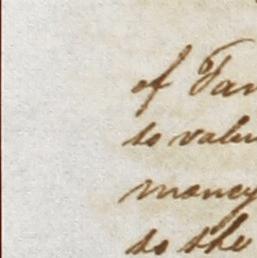 of Tan
to valu
money
to the